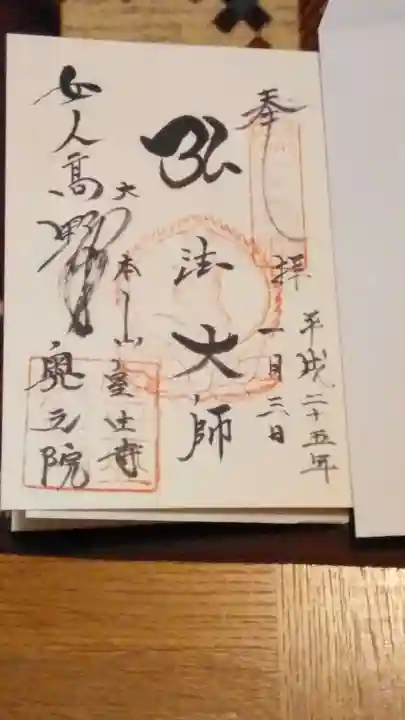 奉拝
平成二十五年
一月三日
弘法大師
大本山室生寺
女人高野
奥之院